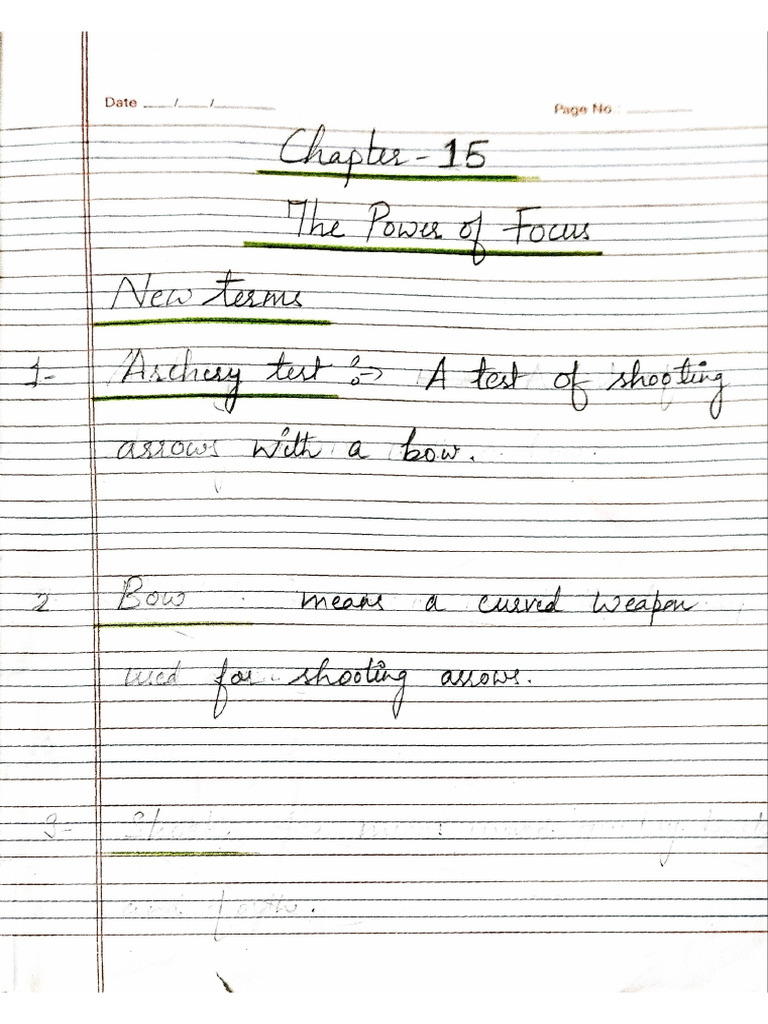 Date ___/___/______
Page No. ______
Chapter - 15
The Power of Focus
New terms
1- Archery test :-> A test of shooting
arrows with a bow.
2 Bow means a curved weapon
used for shooting arrows.
3-
and forth.